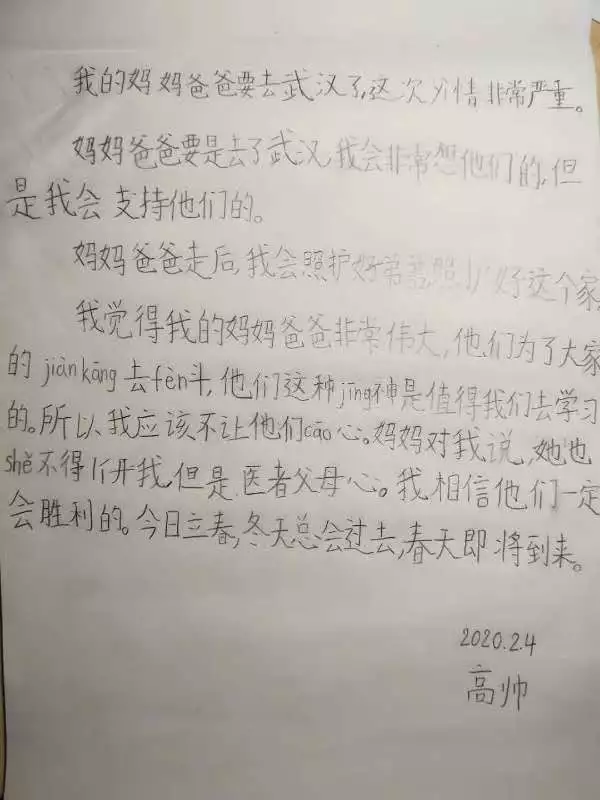 我的妈妈爸爸要去武汉了,这次 情非常严重。
妈妈爸爸要是去了武汉,我会非常想他们的,但
是我会支持他们的。
妈妈爸爸走后,我会照护好弟弟,照护好这个家。
我觉得我的妈妈爸爸非常伟大,他们为了大家
的jiànkāng去fèn斗,他们这种jīng神是值得我们去学习
的。所以,我应该不让他们cāo心。妈妈对我说,她也
shě不得 开我,但是医者父母心。我相信他们一定
会胜利的。今日立春,冬天总会过去,春天即将到来。
2020.2.4
高帅